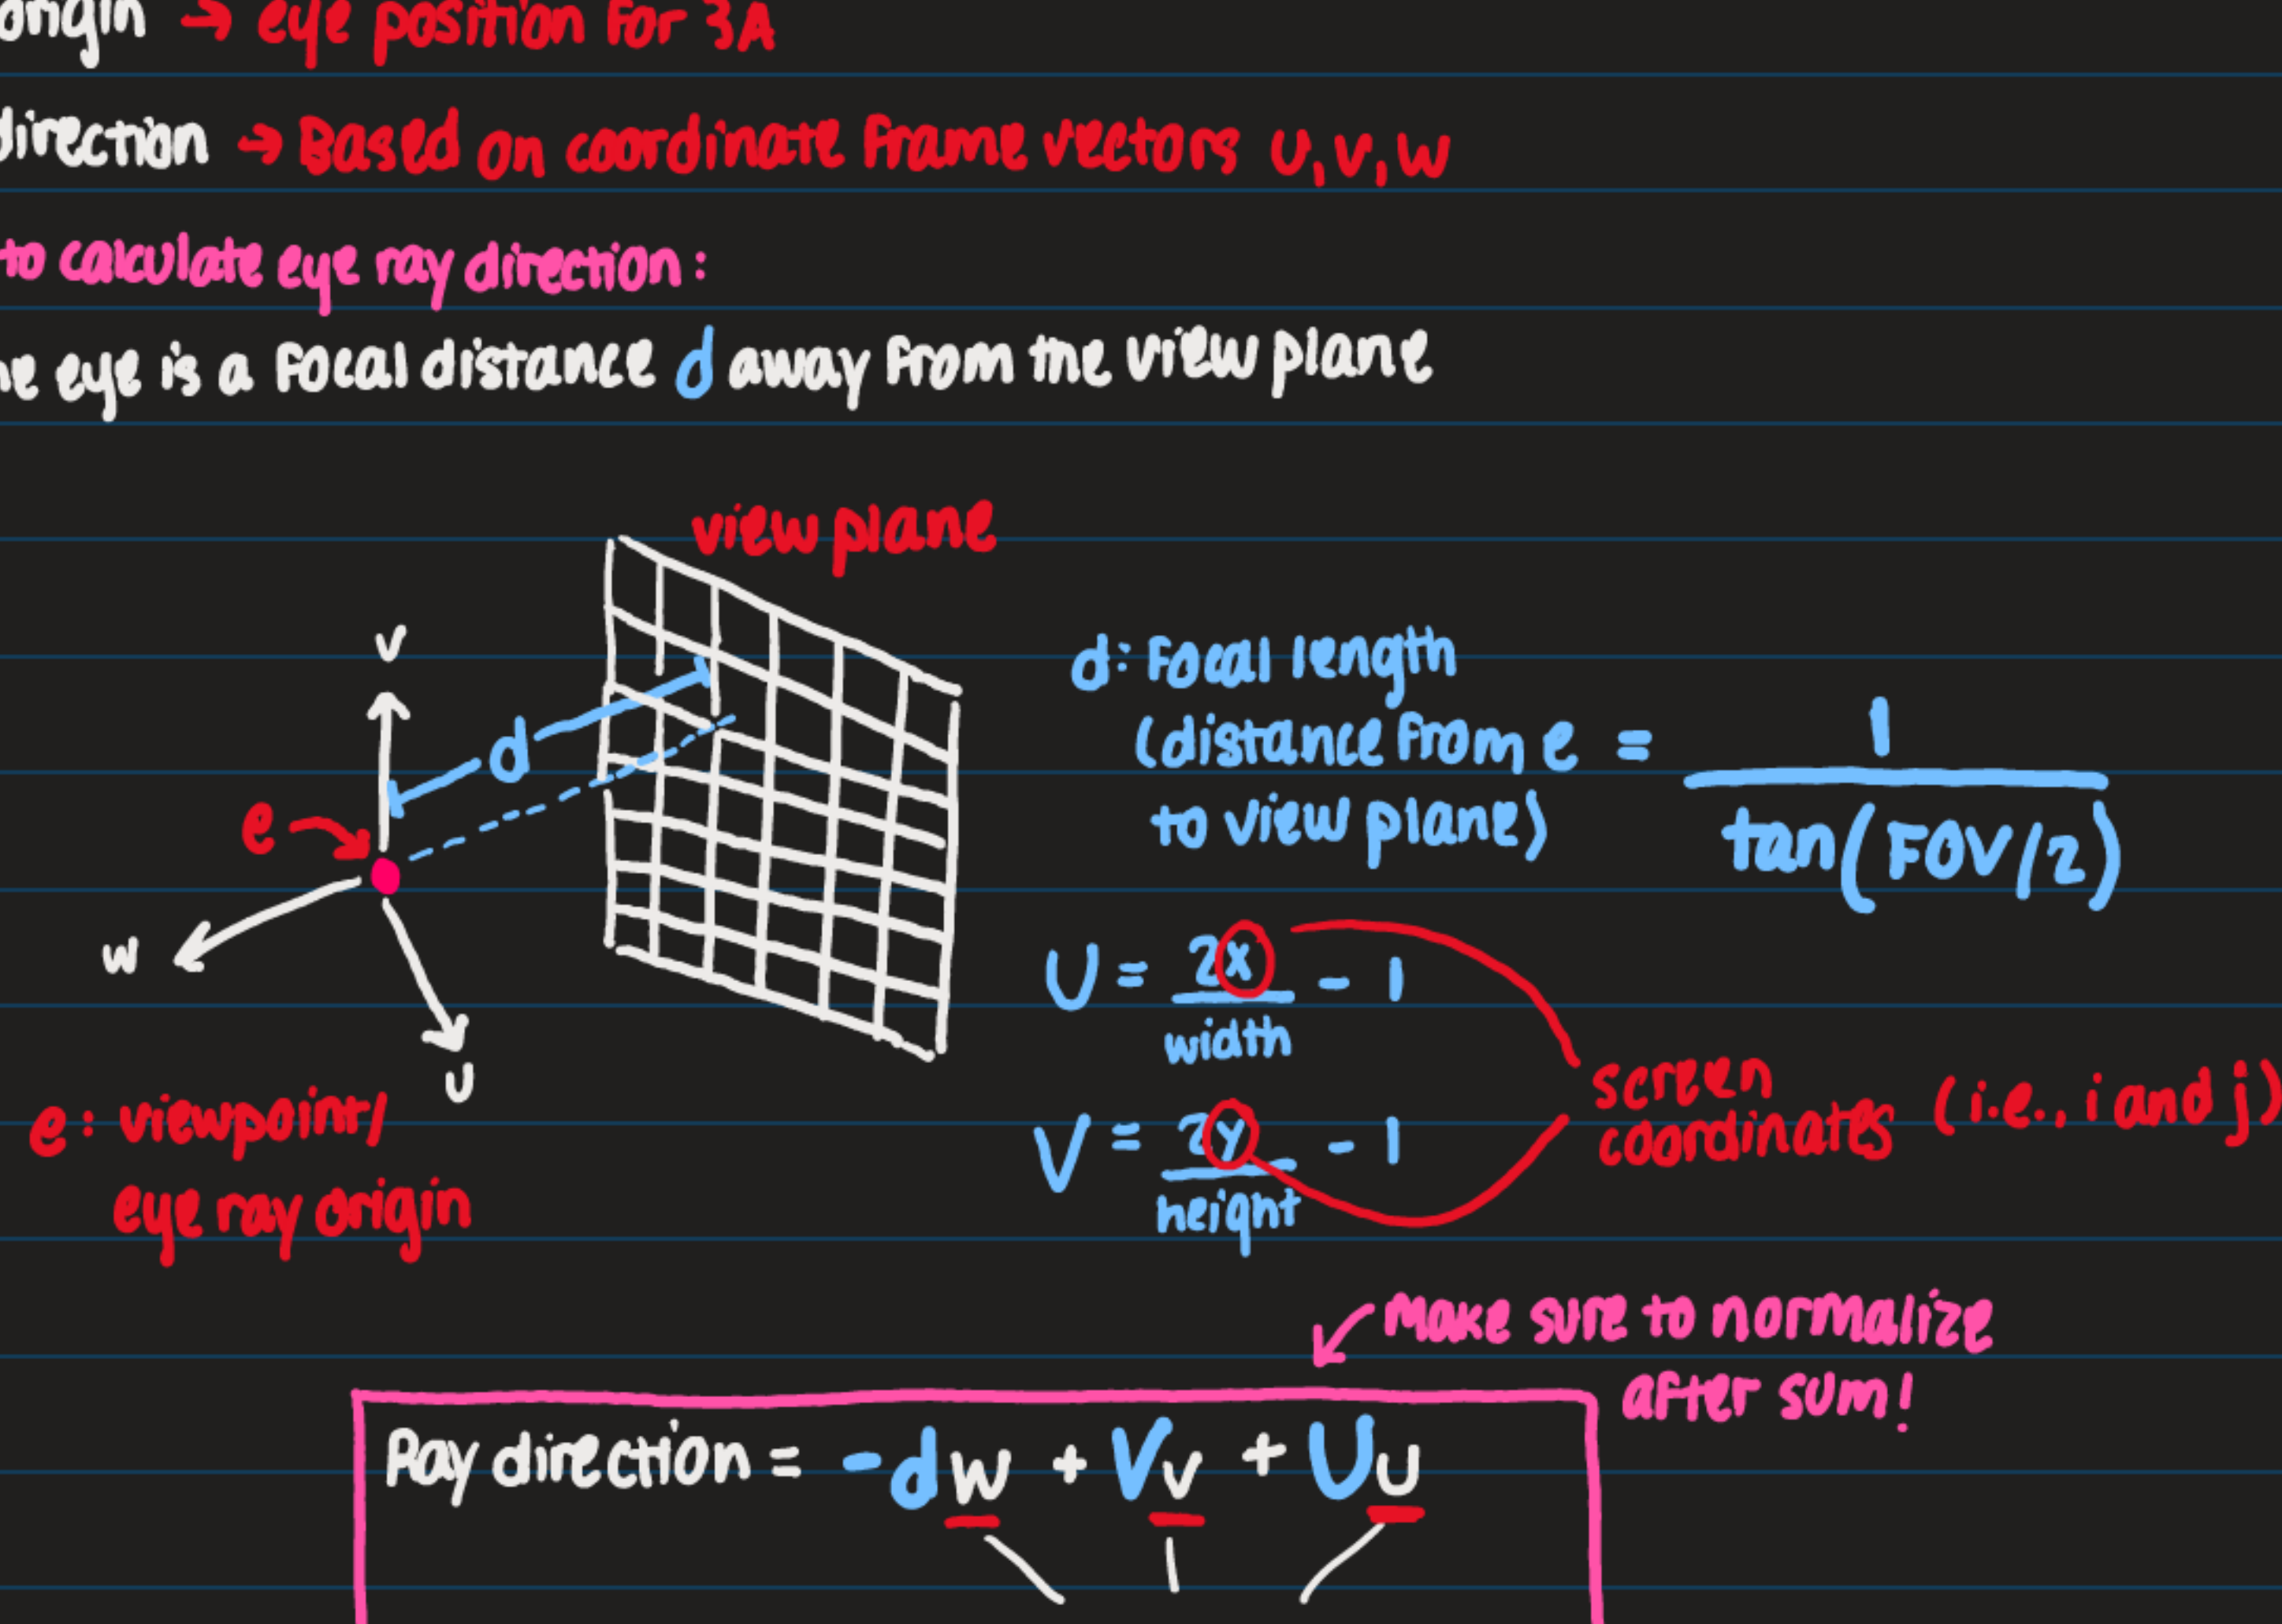 origin → eye position for 3A
direction → Based on coordinate frame vectors u, v, w
to calculate eye ray direction:
he eye is a focal distance d away from the view plane
view plane
v
d
e
w
u
e: viewpoint/
eye ray origin
d: focal length
(distance from e
to view plane)
= 1 / tan(FOV/2)
U = 2x/width - 1
V = 2y/height - 1
screen
coordinates (i.e., i and j)
make sure to normalize
after sum!
Ray direction = -dw + Vv + Uu